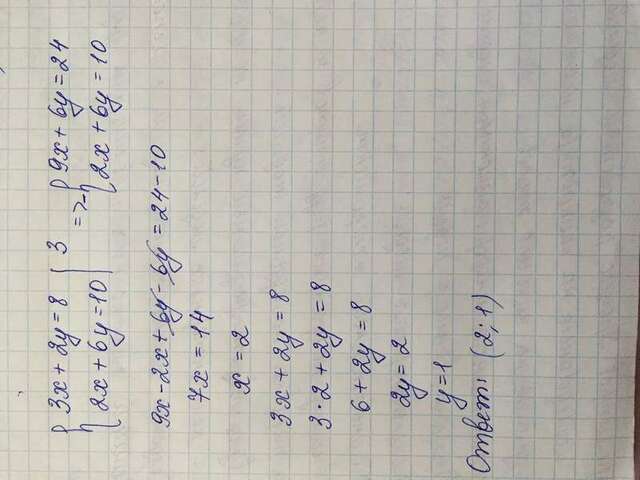 {3x + 2y = 8 | 3 => - {9x + 6y = 24
{2x + 6y = 10 | {2x + 6y = 10
9x - 2x + 6y - 6y = 24 - 10
7x = 14
x = 2
3x + 2y = 8
3 · 2 + 2y = 8
6 + 2y = 8
2y = 2
y = 1
Ответ: (2; 1)